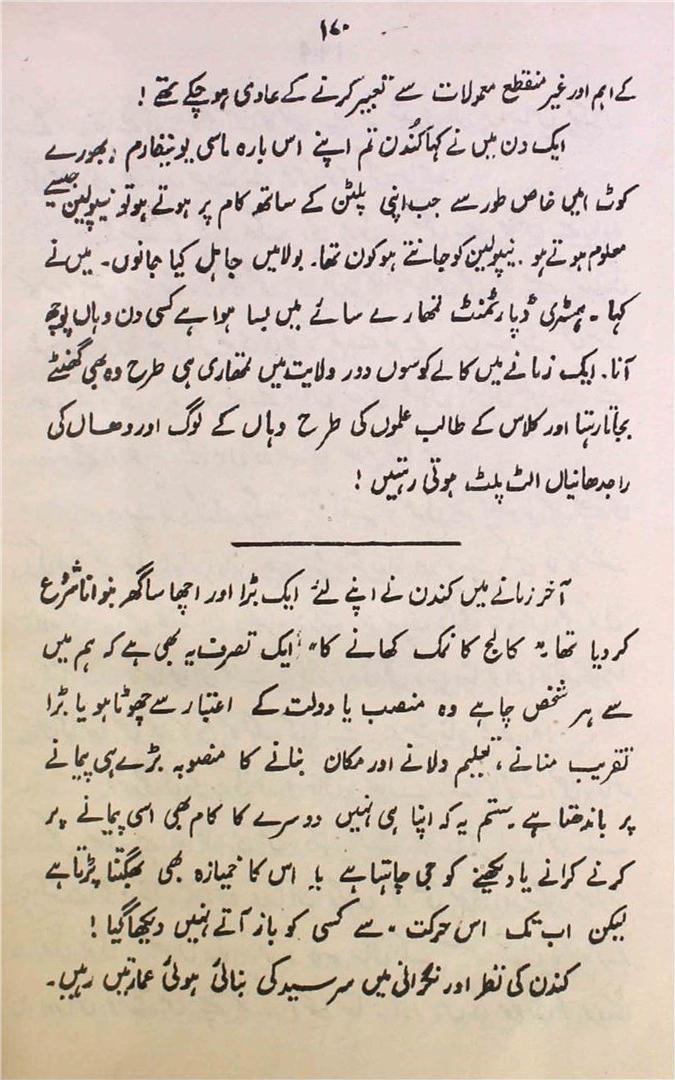 ۱۷۰
کے اہم اور غیر منقطع معمولات سے تعبیر کرنے کے عادی ہو چکے تھے !
ایک دن میں نے کہا کُندن تم اپنے اس بارہ ماسی یونیفارم ، بھورے
کوٹ میں خاص طور سے جب اپنی پلٹن کے ساتھ کام پر ہوتے ہو تو نیپولین جیسے
معلوم ہوتے ہو . نیپولین کو جانتے ہو کون تھا۔ بولا میں جاہل کیا جانوں۔ میں نے
کہا ۔ ہسٹری ڈپارٹمنٹ تمھارے سائے میں بسا ہوا ہے کسی دن وہاں پوچھ
آنا. ایک زمانے میں کالے کوسوں دور ولایت میں تمھاری ہی طرح وہ بھی گھنٹے
بجاتا رہتا اور کلاس کے طالب علموں کی طرح وہاں کے لوگ اور وھاں کی
راجدھانیاں الٹ پلٹ ہوتی رہتیں !
آخر زمانے میں کندن نے اپنے لئے ایک بڑا اور اچھا سا گھر بنوانا شروع
کر دیا تھا ۔ " کالج کا نمک کھانے کا " ایک تصرف یہ بھی ہے کہ ہم میں
سے ہر شخص چاہے وہ منصب یا دولت کے اعتبار سے چھوٹا ہو یا بڑا
تقریب منانے ، تعلیم دلانے اور مکان بنانے کا منصوبہ بڑے ہی پیمانے
پر باندھتا ہے . ستم یہ کہ اپنا ہی نہیں دوسرے کا کام بھی اسی پیمانے پر
کرنے کرانے یا دیکھنے کو جی چاہتا ہے اس کا خمیازہ بھی بھگتنا پڑتا ہے
لیکن اب تک اس حرکت سے کسی کو باز آتے نہیں دیکھا گیا !
کندن کی نظر اور نگرانی میں سرسید کی بنائی ہوئی عمارتیں رہیں۔